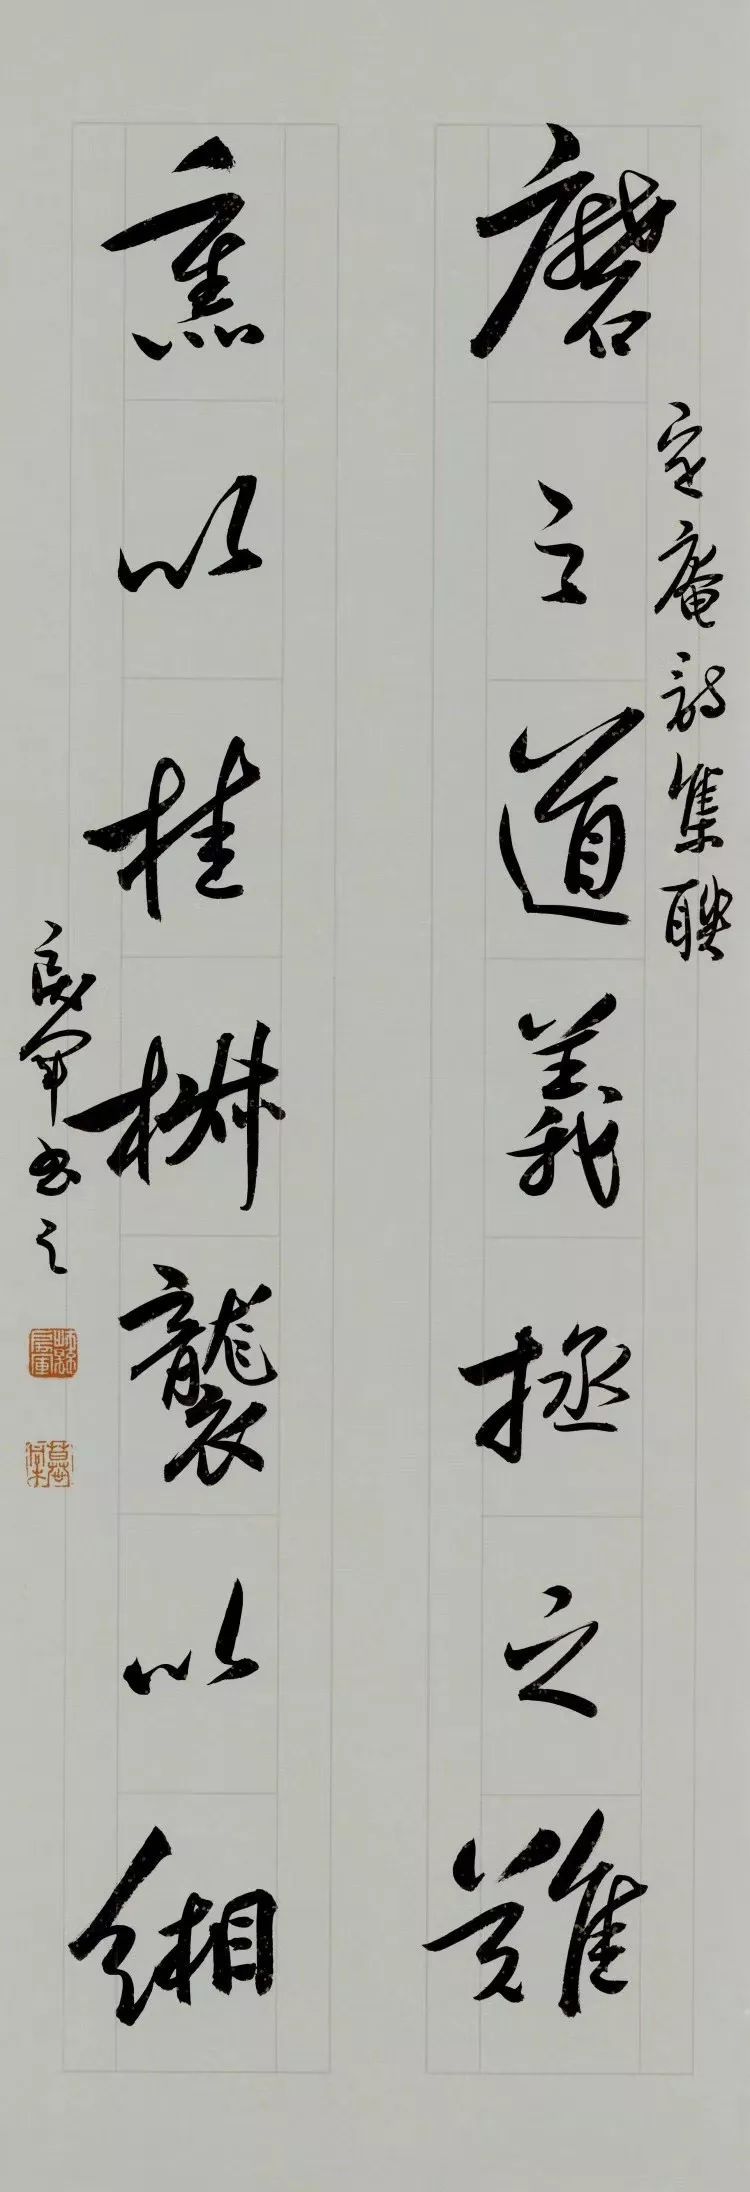 定庵詩集聯
磨之道義拯之難
熏以桂椒襲以緗
軍書之